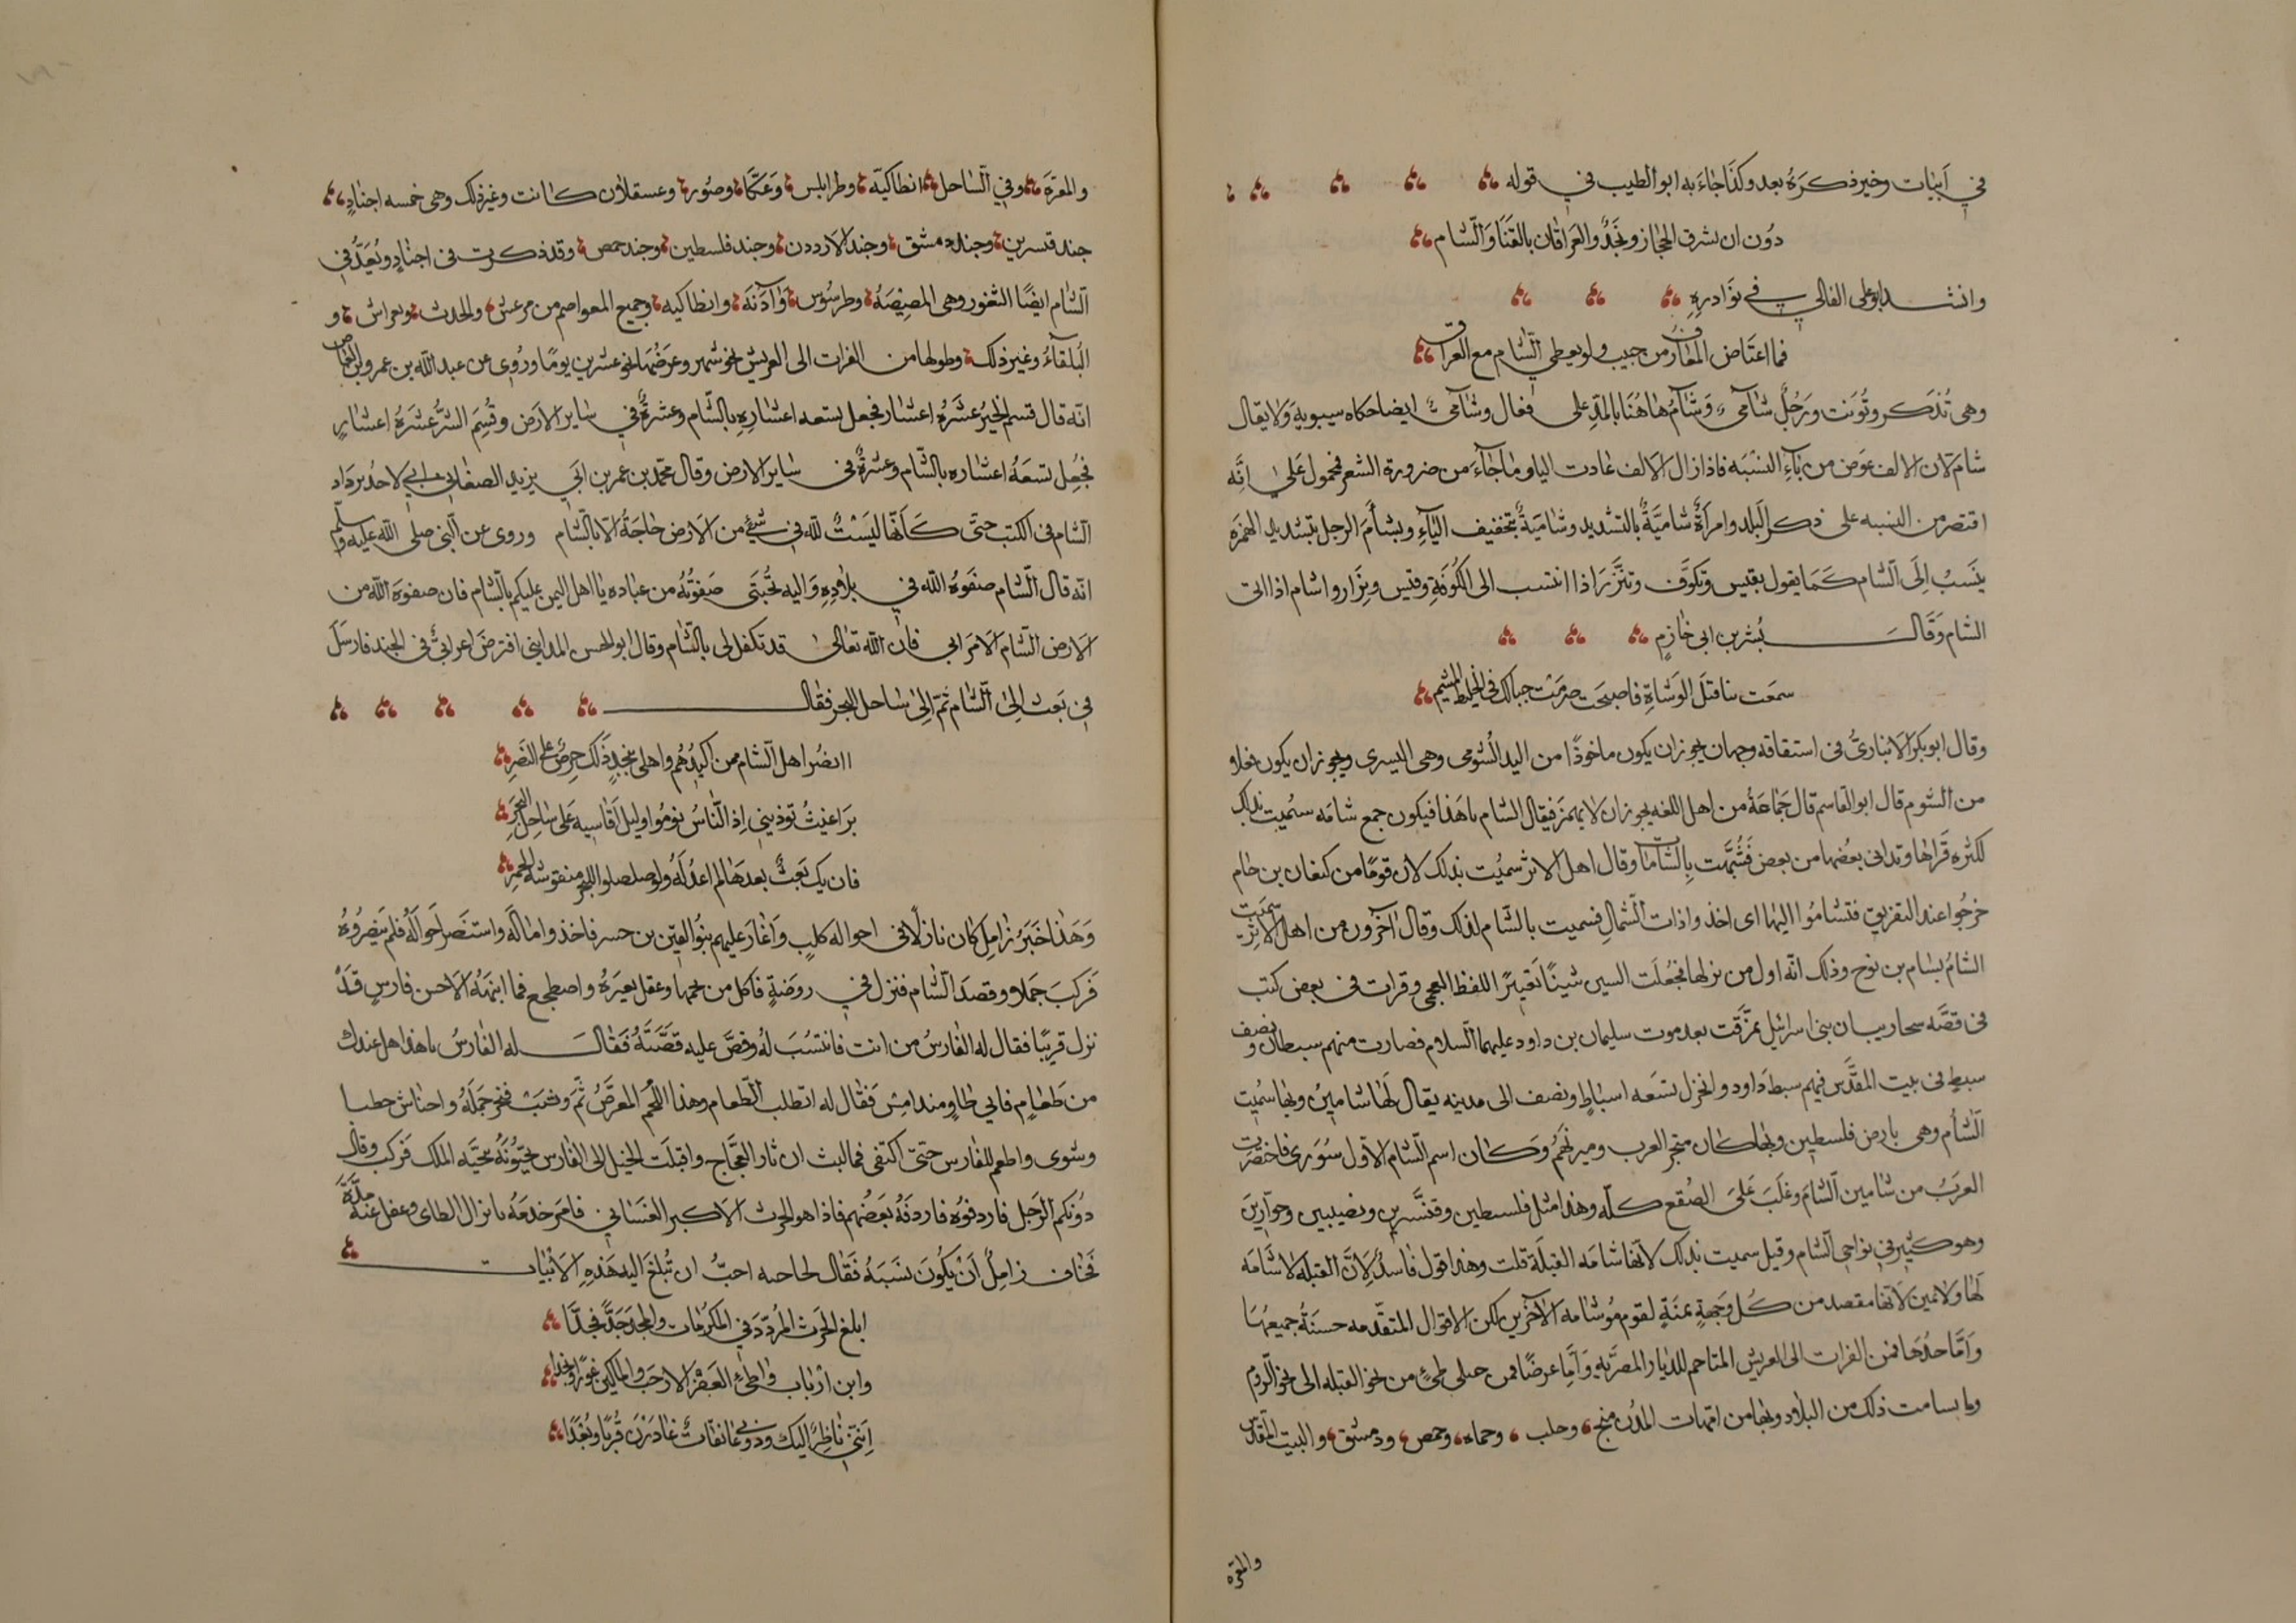 في ابيات وخير ذكره بعد وكذا جاء به ابو الطيب في قوله
دون ان يشرق الحجاز ونجد والعراقان بالقنا والشام
وانشد ابو على القالي في نوادره
فما اعتاض المفارق من حبيب ولو يعطي الشام مع العراق
وهى تذكر وتونث ورجل شآمى وشآم هاهنا بالمد على فعال وشآمى ايضا حكاه سيبويه ولا يقال
شام لان الالف عوض من ياء النسبه فاذا زال الالف عادت اليا وما جاء من ضرورة الشعر فمحمول على انه
اقتصر من النسبه على ذكر البلد وامرأة شاميّة بالتشديد وشامية بتخفيف الياء وبشأم الرجل بتشديد الهمزه
ينسب الى الشام كما يقول بقيس وتكوف وتنزر اذا انتسب الى الكوفة وقيس ونزار واشام اذا اتى
الشام وقال بشر بن ابى خازم
سمعت بنا قتل الوشاة فاصبحت صرمت حبالك فى الخليط المشيم
وقال ابو بكر الانباري فى اشتقاقه وجهان يجوز ان يكون ماخوذا من اليد الشومى وهى اليسرى ويجوز ان يكون فعلا
من الشوم قال ابو القاسم قال جماعة من اهل اللغه يجوز ان لا يهمز فيقال الشام ياهذا فيكون جمع شامه سميت بذلك
لكثره قراها وتدانى بعضها من بعض فشبهت بالشامات وقال اهل الاثر سميت بذلك لان قوما من كنعان بن حام
خرجوا عند التفريق فتشاموا اليها اى اخذوا ذات الشمال فسميت بالشام لذلك وقال آخرون من اهل الاثر سميت
الشام بسام بن نوح وذلك انه اول من نزلها فجعلت السين شينا تغيرا اللفظ العجمى وقرات فى بعض كتب
فى قصه سحاريب ان بنى اسرائيل تمزقت بعد موت سليمان بن داود عليهما السلام فصارت منهم سبطان ونصف
سبط فى بيت المقدس فهم سبط داود وانخزل تسعه اسباط ونصف الى مدينه يقال لها شامين وبها سميت
الشأم وهى بارض فلسطين وبها كان متجر العرب وميرتهم وكان اسم الشام الاول سورى فاختصرت
العرب من شامين الشام وغلب على الصقع كله وهذا مثل فلسطين وقنسرين ونصيبين وحوارين
وهو كثير في نواحى الشام وقيل سميت بذلك لانها شامه القبلة قلت وهذا قول فاسد لان القبله لا شامه
لها ولا يمين لانها مقصد من كل وجهة يمنة لقوم وشامه لآخرين لكن الاقوال المتقدمه حسنة جميعها
وأما حدها فمن الفرات الى العريش المتاحم للديار المصريه وأما عرضا فمن جبلى طئ من نحو القبله الى نحو الروم
وما بسامت ذلك من البلاد وبها من امهات المدن منبج وحلب وحماه وحمص ودمشق والبيت المقدس
والمعره
والمعرة وفي الساحل انطاكيه وطرابلس وعكا وصور وعسقلان كانت وغير ذلك وهى خمسه اجناد
جند قنسرين وجند دمشق وجند الارددن وجند فلسطين وجند حمص وقد ذكرت فى اجناد ويعد في
الشام ايضا الثغور وهى المصيصه وطرسوس وآدنه وانطاكيه وجميع المعواصم من مرعش والحدث وبغراش و
البلقاء وغير ذلك وطولها من الفرات الى العريش نحو شهر وعرضها نحو عشرين يوما وروى عن عبد الله بن عمرو بن العاص
انه قال قسم الخير عشره اعشار فجعل تسعه اعشاره بالشام وعشرة في ساير الارض وقسم الشر عشره اعشار
فجعل تسعة اعشاره بالشام وعشرة فى ساير الارض وقال محمد بن عمر بن يزيد الصغانى انى لاجد برداد
الشام فى الكتب حتى كأنها ليست لله فى شئ من الارض حاجة الا بالشام وروى عن النبى صلى الله عليه وسلم
انه قال الشام صفوة الله في بلاده واليه يجتبى صفوته من عباده يا اهل اليمن عليكم بالشام فان صفوه الله من
الارض الشام الا من ابى فان الله تعالى قد تكفل لى بالشام وقال ابو الحسن المدايني افترض اعرابى فى الجند فارسل
في بعث الى الشام ثم الى ساحل البحر فقال
اانصر اهل الشام ممن اكيدهم واهلى بنجد ذلك حرص على النصر
براغيث توذيني اذ الناس نوموا وليل اقاسيه على ساحل البحر
فان يك بعث بعدها لم اعد له ولو صلصلوا للبحر منقوشه الحمر
وهذا خبر زامل كان نازلا فى احواله كلب واغار عليهم بنو القين بن حسر فاخذوا ماله واستنصر احواله فلم ينصروه
فركب جملا وقصد الشام فنزل في روضة فاكل من نحمها وعقل بعيره واضطجع فما انبهه الا حس فارس قد
نزل قريبا فقال له الفارس من انت فانتسب له وقص عليه قصته فقال له الفارس ياهذا هل عندك
من طعام فانى طاو منذ امس فقال له اتطلب الطعام وهذا اللحم المعرض ثم وثب فنحر جمله واحتاش حطبا
وشوى واطعم للفارس حتى اكتفى فما لبث ان ثار العجاج واقبلت الخيل الى الفارس يحيونه بتحيه الملك فركب وقال
دونكم الرجل فاردفوه فاردفه بعضهم فاذا هو الحرث الاكبر الغسانى فامر خدعه بانزال الطاى وغفل عنه مدة
فخاف زامل ان يكون نسيه فقال لحاجبه احب ان تبلغ اليه هذه الابيات
ابلغ الحرث المردد في المكرمات والمجد جدا فجدا
وابن ارباب واطئ العفر الارحب والمالكين غورا ونجدا
انني ناظر اليك ودونى عانقات غادرن قربا وبعدا